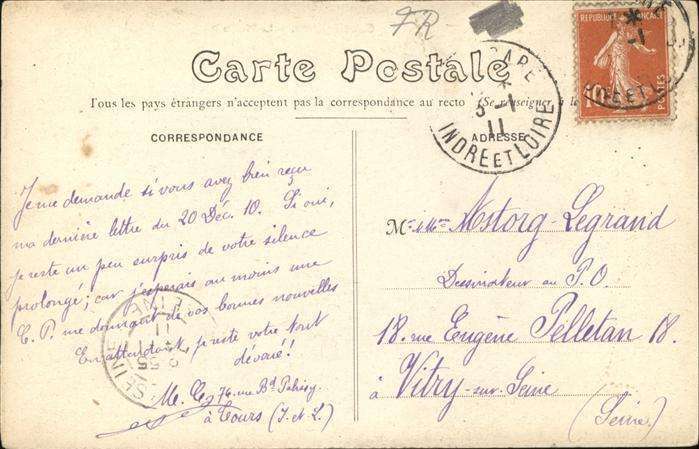 FR
Carte Postale
Tous les pays étrangers n'acceptent pas la correspondance au recto (Se renseigner à la
CORRESPONDANCE
ADRESSE
GARE
3-1
11
INDRE ET LOIRE
REPUBLIQUE FRANCAISE
10
POSTES
Je me demande si vous avez bien reçu
ma dernière lettre du 20 Déc. 10. Si oui,
je reste un peu surpris de votre silence
prolongé; car j'espérais au moins une
C. P. me donnant de vos bonnes nouvelles
En attendant je reste votre tout
dévoué!
M. 76 rue Bd
à Tours (I-&-L.)
Mr & Mme Astorg-Legrand
Dessinateur au P.O.
18. rue Eugène Pelletan 18.
à Vitry-sur-Seine
(Seine.)
SEINE